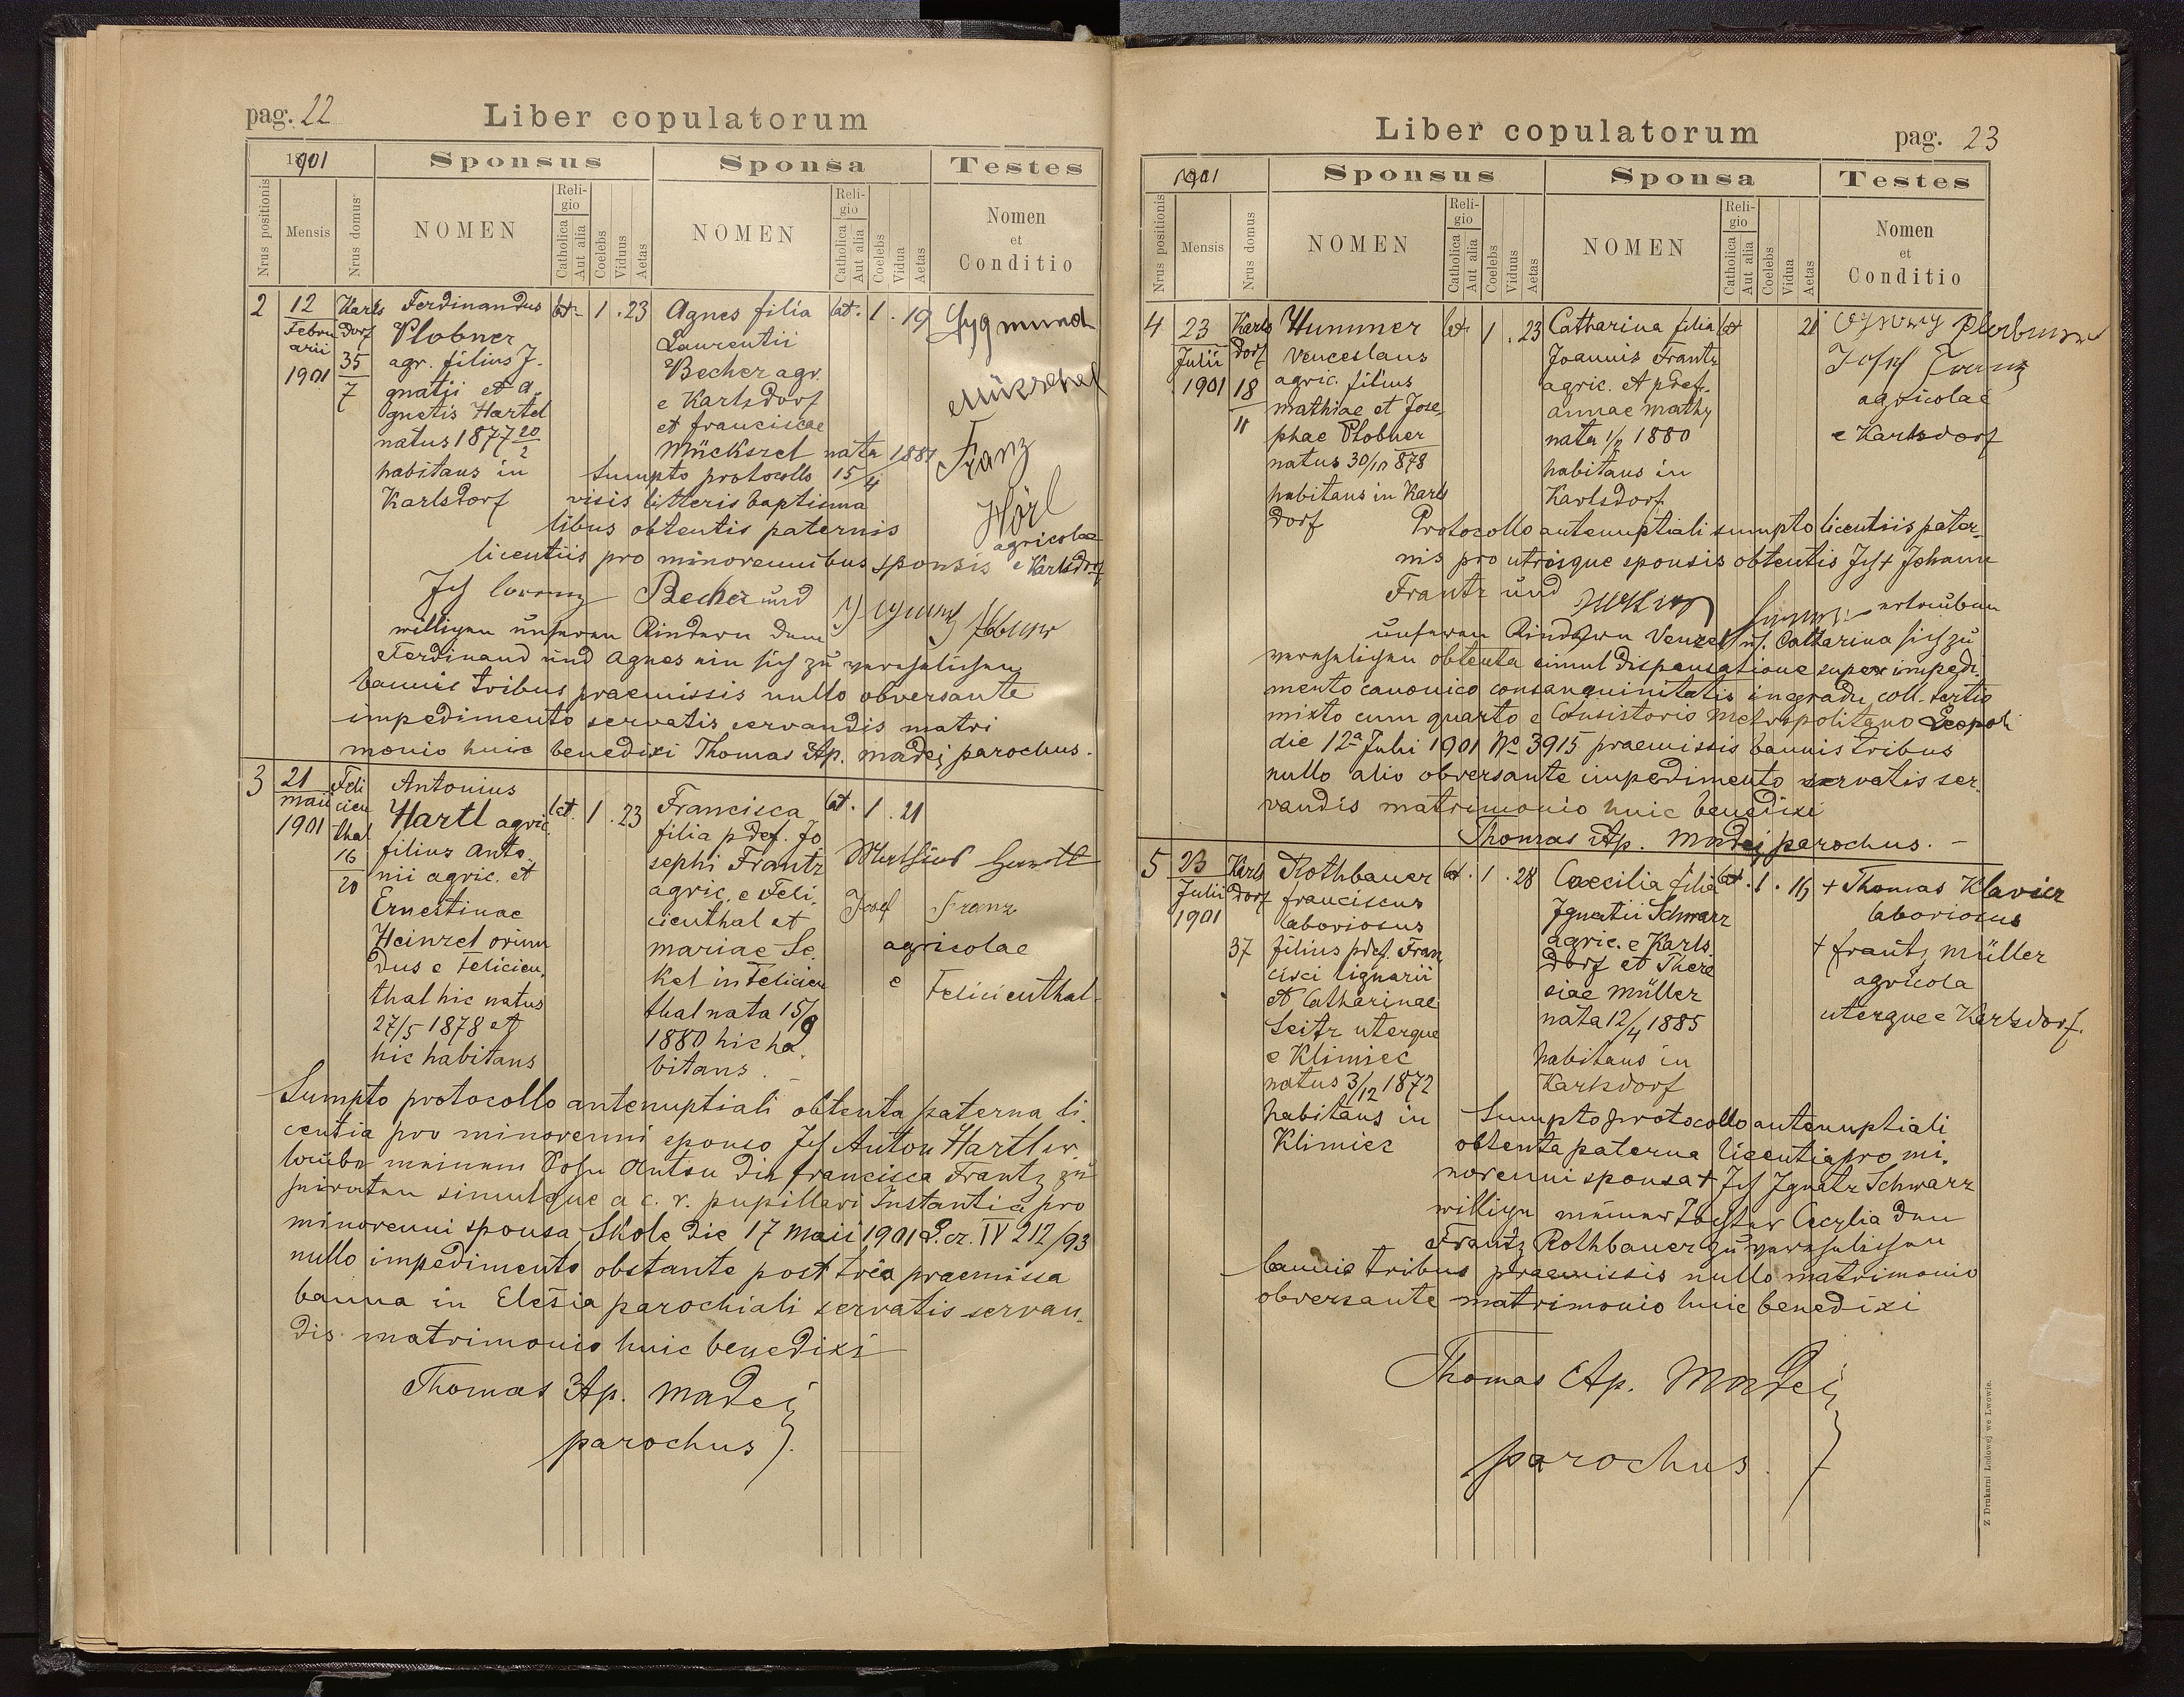 pag. 22
Liber copulatorum
1901
Sponsus
Sponsa
Testes
Nrus positionis
Mensis
Nrus domus
NOMEN
Religio
Catholica
Aut alia
Coelebs
Viduus
Aetas
NOMEN
Religio
Catholica
Aut alia
Coelebs
Vidua
Aetas
Nomen
et
Conditio
2
12
Febru
arii
1901
Karls
dorf
35
7
Ferdinandus
Plobner
agr. filius J.
gnatii et A.
gnetis Hartel
natus 1877 20/2
habitans in
Karlsdorf
cat. 1 . 23
Agnes filia
Laurentii
Becher agr.
e Karlsdorf
et franciscae
Mückszel nata 1881
15/4
cat. 1 . 19
Sygmund
Mükschel
Franz
Hörl
agricolae
e Karlsdorf
Sumpto protocollo
visis litteris baptisma
libus obtentis paternis
licentiis pro minorennibus sponsis
Ich Lorenz Becher und
willigen unseren Kindern dem
Ferdinand und Agnes ein sich zu verehelichen
bannis tribus praemissis nullo obversante
impedimento servatis servandis matri
monio huic benedixi Thomas Ap. Madej parochus.
3
21
Maii
1901
Feli
cien
thal
16
20
Antonius
Hartl agric
filius Anto
nii agric. et
Ernestinae
Heinzel oriun
dus e Felicien.
thal hic natus
27/5 1878 et
hic habitans
cat. 1 . 23
Francisca
filia p def. Jo
sephi Frantz
agric. e Feli.
cienthal et
Mariae Se.
kel in Felicien
thal nata 15/9
1880 hic ha.
bitans.
cat. 1 . 21
Josef Franz
agricolae
e Felicienthal
Sumpto protocollo antenuptiali obtenta paterna li.
centia pro minorenni sponso Ich Anton Hartl er.
laube meinem Sohn Anton die francisca Frantz zu
heiraten simulque a c. r. pupillari Instantia pro
minorenni sponsa Skole die 17 Maii 1901 L. cz. IV 212/93
nullo impedimento obstante post tria praemissa
banna in Elesia parochiali servatis servan.
dis matrimonio huic benedixi
Thomas Ap. Madej
parochus
Liber copulatorum
pag. 23
1901
Sponsus
Sponsa
Testes
Nrus positionis
Mensis
Nrus domus
NOMEN
Religio
Catholica
Aut alia
Coelebs
Viduus
Aetas
NOMEN
Religio
Catholica
Aut alia
Coelebs
Vidua
Aetas
Nomen
et
Conditio
4
23
Julii
1901
Karls
dorf
18
11
Hummer
Venceslaus
agric. filius
Mathiae et Jose
phae Plobner
natus 30/10 878
habitans in Karls
dorf
cat. 1 . 23
Catharina filia
Joannis Frantz
agric. et p def.
Annae Mathy
nata 1880
habitans in
Karlsdorf
cat
21
Plobner
Josef Frantz
agricolae
e Karlsdorf
Protocollo antenuptiali sumpto licentiis pater.
nis pro utrisque sponsis obtentis Ich + Johann
Frantz und erlauben
unseren Kindern Venzel u. Catharina sich zu
verehelichen obtenta simul dispensatione super impedi.
mento canonico consanquinitatis in gradu coll. tertio
mixto cum quarto e Consistorio Metropolitano Leopoli
die 12a Julii 1901 No 3915 praemissis bannis tribus
nullo alio obversante impedimento servatis ser.
vandis matrimonio huic benedixi
Thomas Ap. Madej parochus.
5
23
Julii
1901
Karls
dorf
37
Rothbauer
franciscus
laboriosus
filius p def. Fran
cisci lignarii
et Catharinae
Seitz uterque
e Klimiec
natus 3/12 1872
habitans in
Klimiec
cat. 1 . 28
Caecilia filia
Ignatii Schwarz
agric. e Karls
dorf et There
siae Müller
nata 12/4 1885
habitans in
Karlsdorf
cat. 1 . 16
+ Thomas Klavier
laboriosus
+ frantz Müller
agricola
uterque e Karlsdorf.
Sumpto protocollo antenuptiali
obtenta paterna licentia pro mi.
norenni sponsa + Ich Ignatz Schwarz
willige meiner Tochter Cecylia dem
Frantz Rothbauer zu verehelichen
bannis tribus praemissis nullo matrimonio
obversante matrimonio huic benedixi
Thomas Ap. Madej
parochus.
Z Drukarni Ludowej we Lwowie.